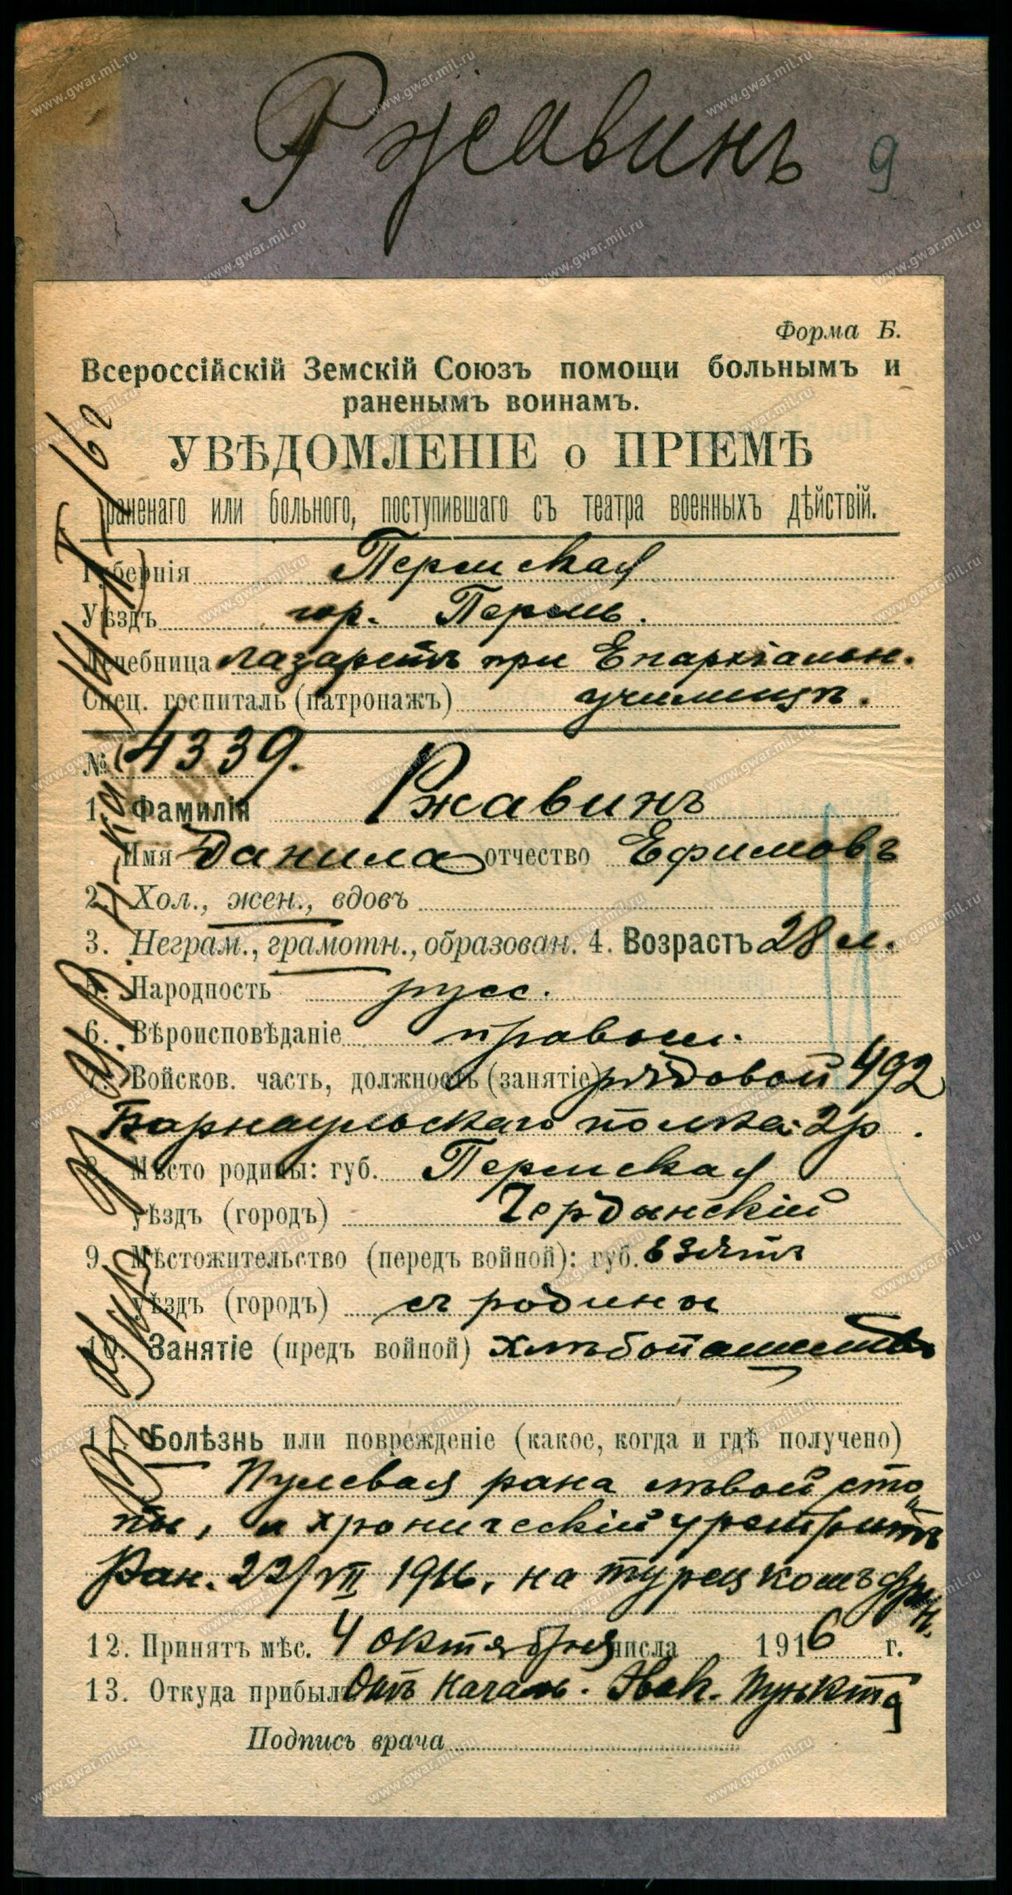 Ржавинъ 9
Форма Б.
Всероссійскій Земскій Союзъ помощи больнымъ и
раненымъ воинамъ.
УВѢДОМЛЕНІЕ о ПРІЕМѢ
раненаго или больного, поступившаго съ театра военныхъ дѣйствій.
Губернія Пермская
Уѣздъ гор. Пермь.
Лечебница Лазаретъ при Епархіальн.
Спец. госпиталь (патронажъ) училищѣ.
№ 4339.
1. Фамилія Ржавинъ
Имя Данила отчество Ефимовъ
2. Хол., жен., вдовъ
3. Неграм., грамотн., образован. 4. Возрастъ 28 л.
5. Народность русс.
6. Вѣроисповѣданіе правосл.
7. Войсков. часть, должность (занятіе) рядовой 492
Барнаульскаго полка 2р.
8. Мѣсто родины: губ. Пермская
уѣздъ (городъ) Чердынскій
9. Мѣстожительство (передъ войной): губ. взятъ
уѣздъ (городъ) съ родины
10. Занятіе (предъ войной) хлѣбопашество
11. Болѣзнь или поврежденіе (какое, когда и гдѣ получено)
Пулевая рана лѣвой сто
пы, и хроническій уретритъ
Ран. 22/VII 1916, на турецкомъ фрон.
12. Принятъ мѣс. 4 октября числа 1916 г.
13. Откуда прибылъ Отъ Начальн. Эвак. Пункта
Подпись врача
www.gwar.mil.ru